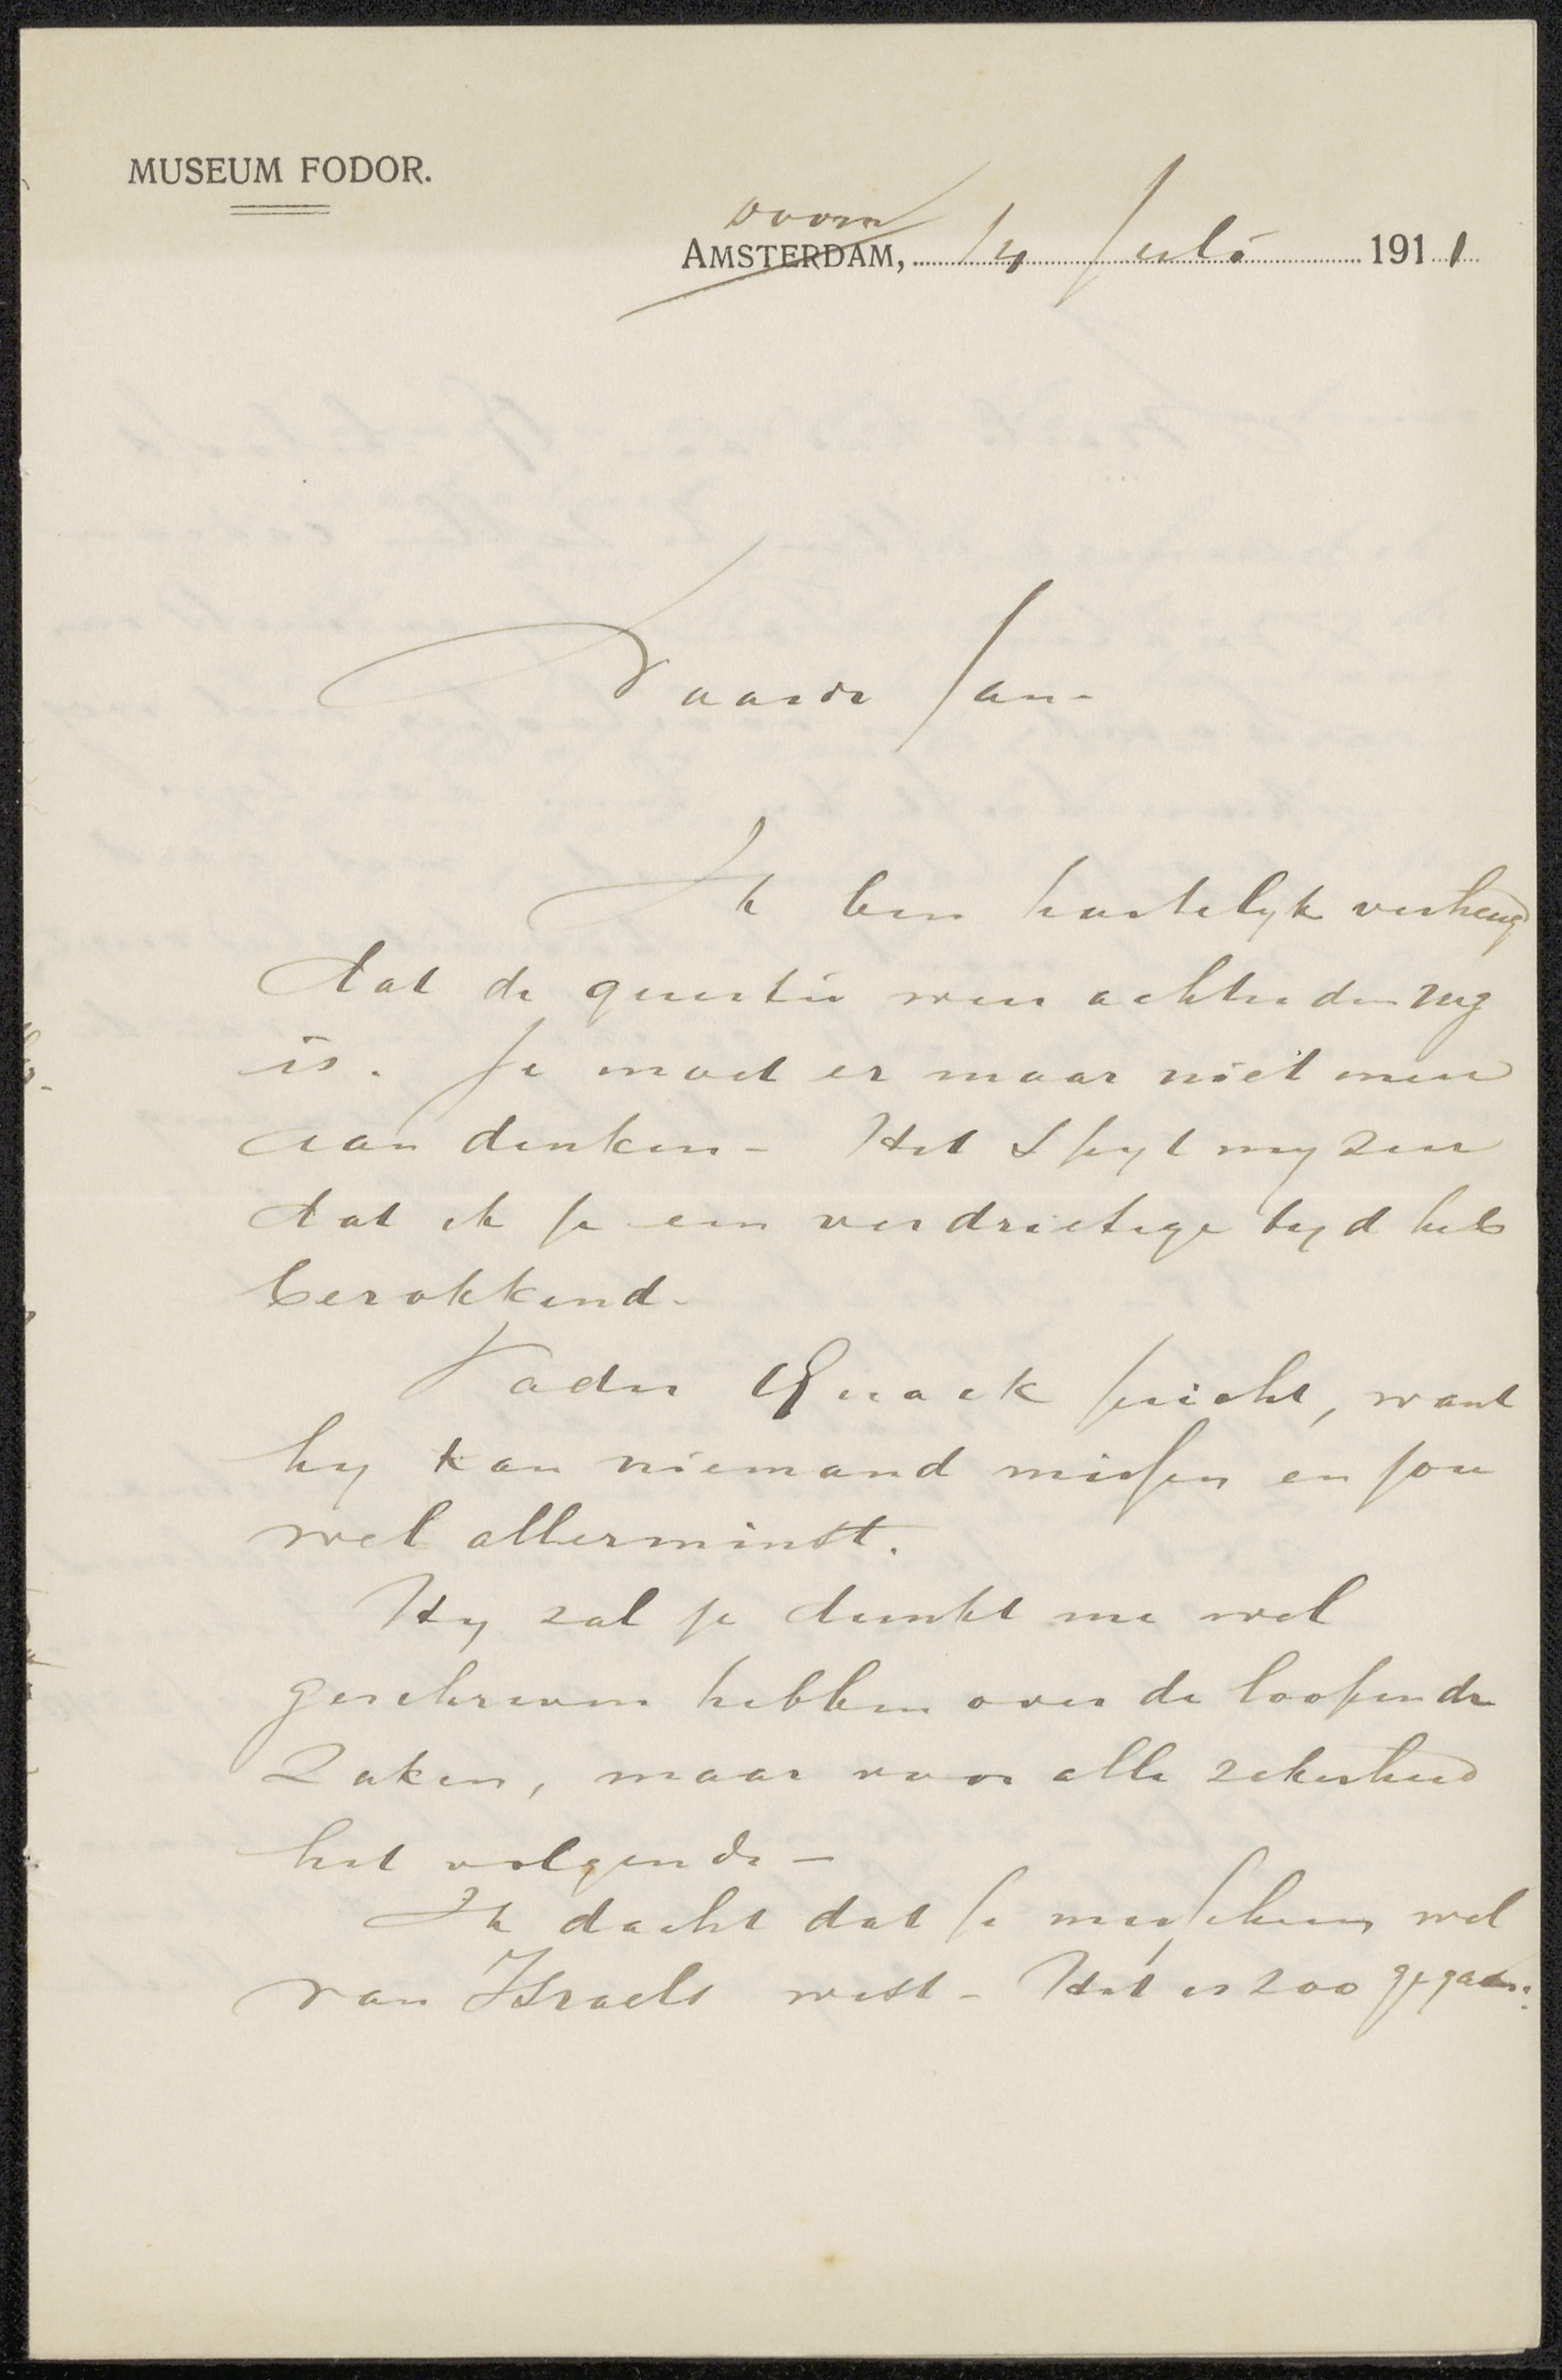 MUSEUM FODOR.
Doorn
AMSTERDAM, 14 Juli 1911
Waarde Jan-
Ik ben hartelyk verheugd
dat de questie weer achter den rug
is. Je moet er maar niet meer
aan denken - Het spyt my zeer
dat ik je een verdrietige tyd heb
berokkend.
Vader Quack juicht, want
hy kan niemand missen en jou
wel allerminst.
Hy zal je dunkt me wel
geschreven hebben over de loopende
zaken, maar voor alle zekerheid
het volgende -
Ik dacht dat je misschien wel
van Israels wist - Het is zoo gegaan: